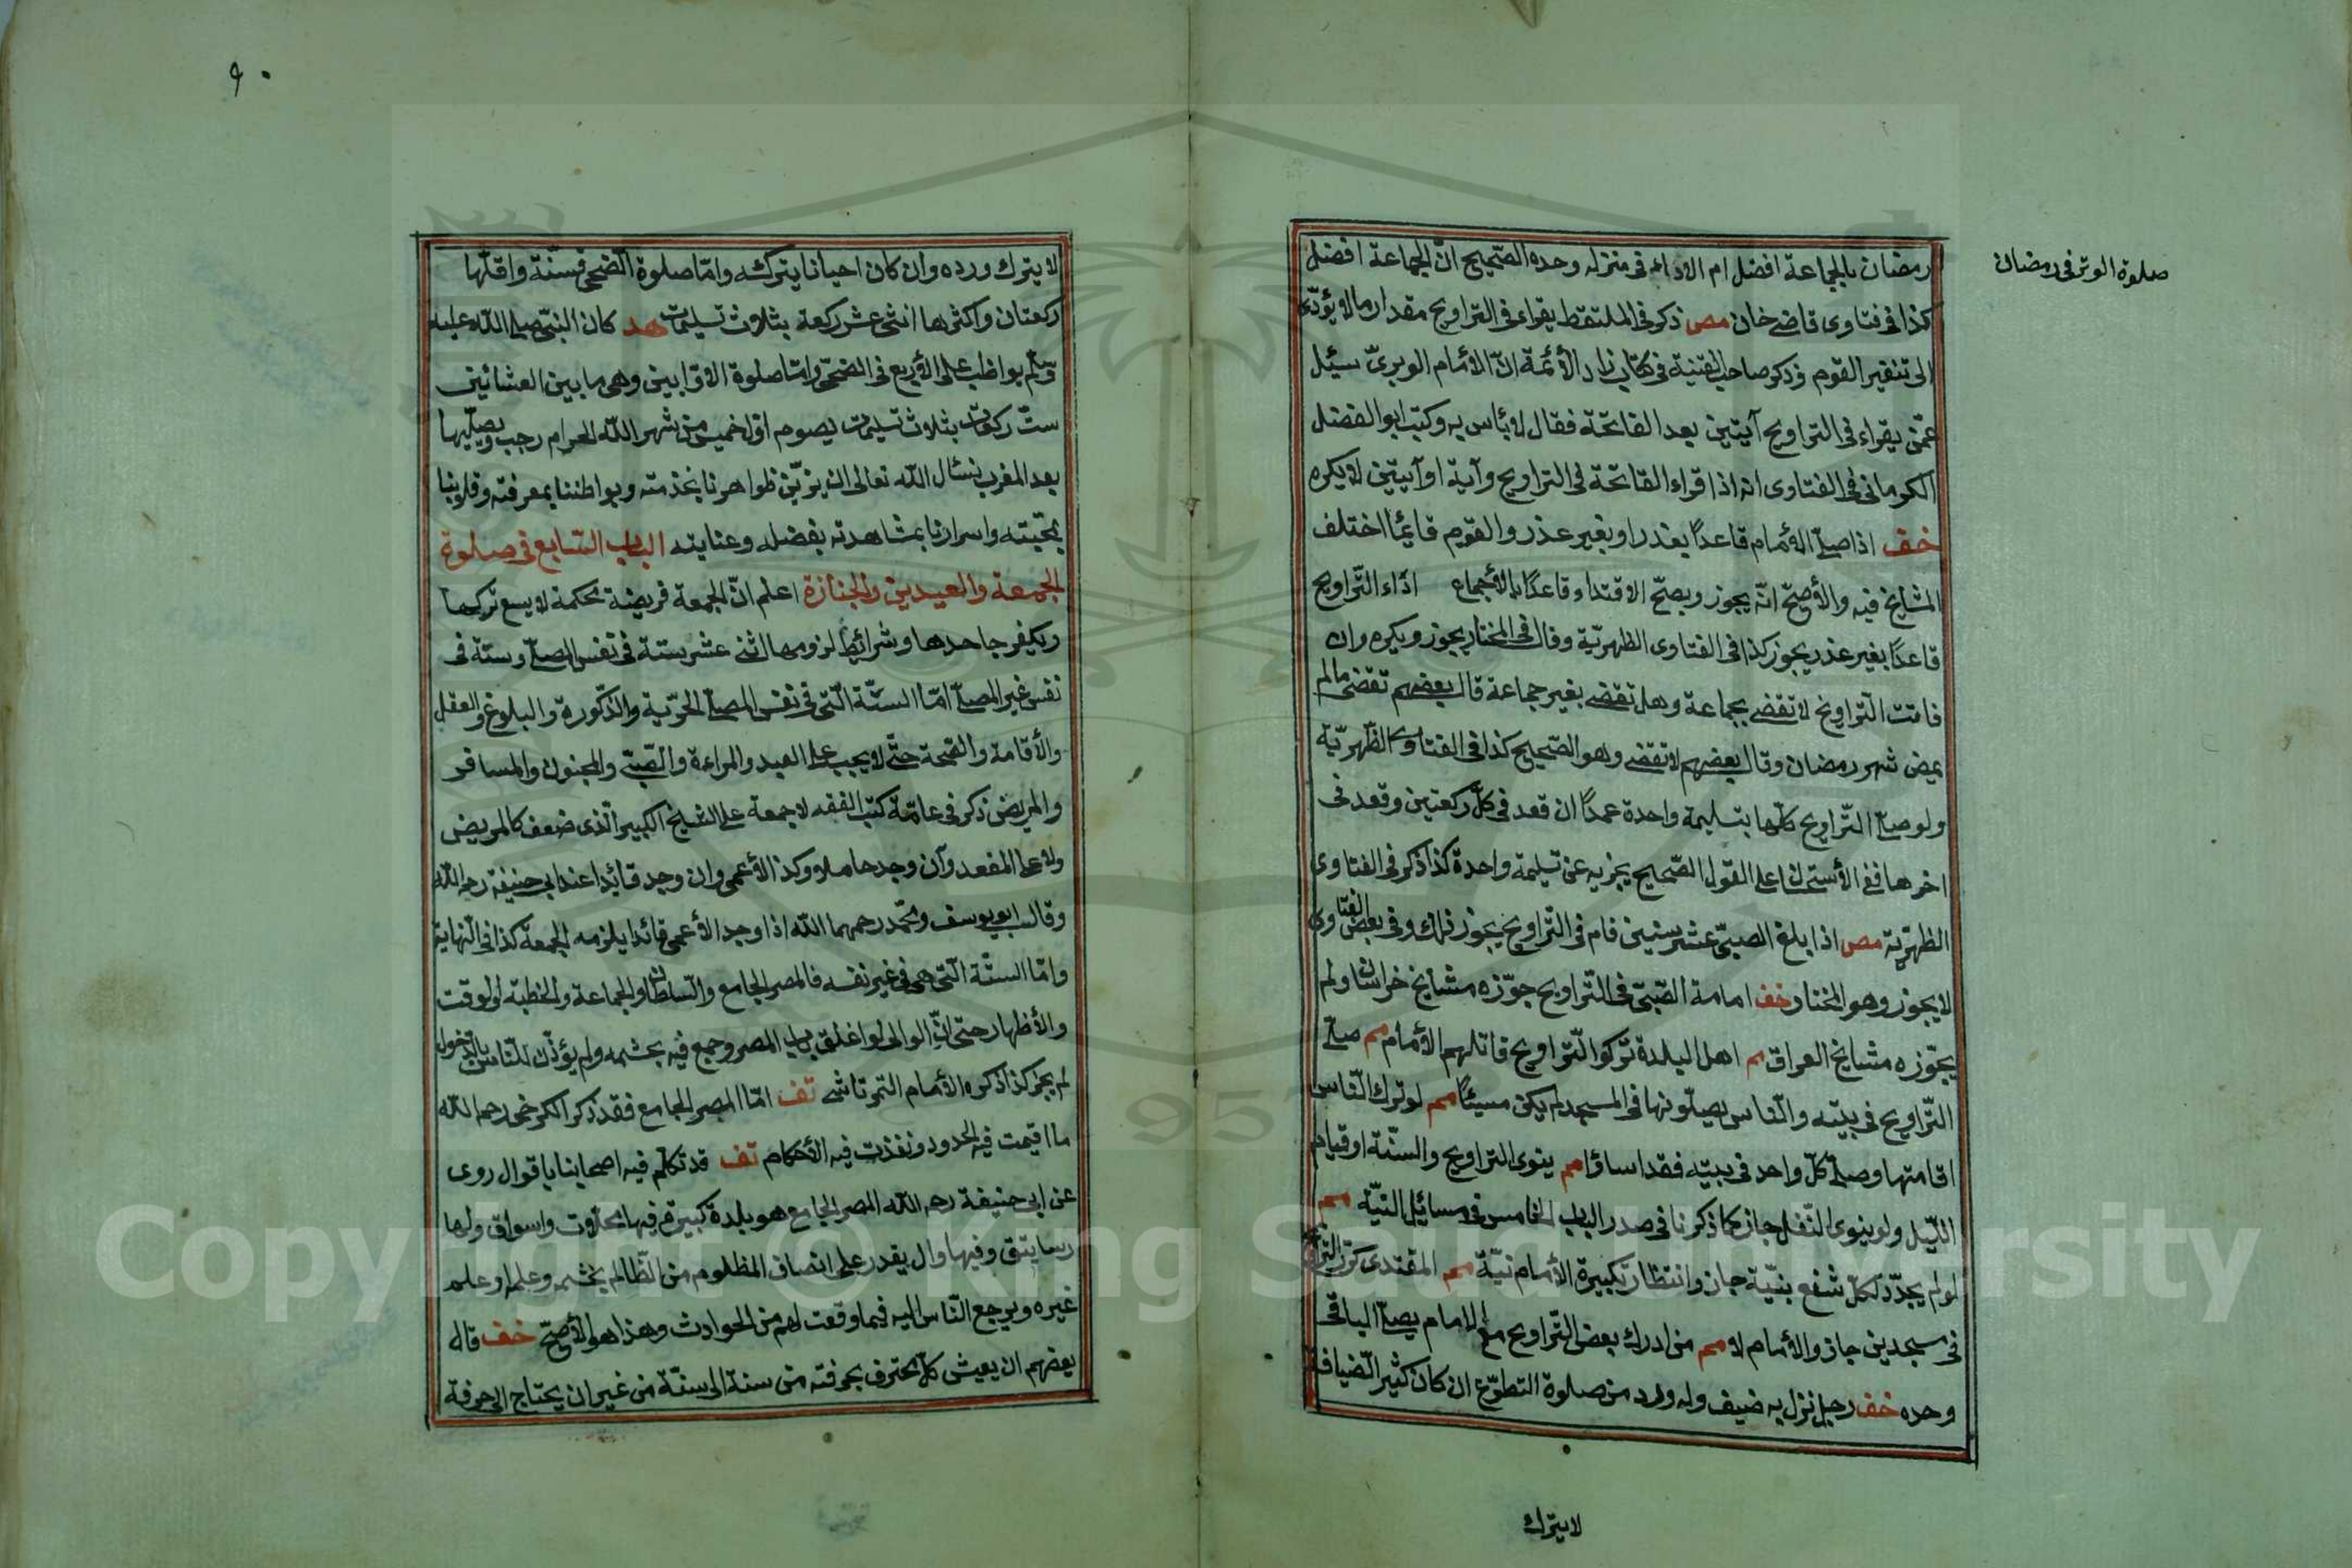 صلوة الوتر فى رمضان
رمضان بالجماعة افضل ام الاداء فى منزله وحده الصّحيح انّ الجماعة افضل
كذا فى فتاوى قاضى خان مص ذكر فى الملتقط يقراء فى التراويح مقدار ما لا يؤدّى
الى تنفير القوم وذكر صاحب القنية فى كتاب زاد الأئمة انّ الأمام الوبرىّ سئل
عمّن يقراء فى التراويح آيتين بعد الفاتحة فقال لا بأس به وكتب ابو الفضل
الكرمانى فى الفتاوى انه اذا قراء الفاتحة فى التراويح وآية او آيتين لا يكره
خف اذا صلّى الأمام قاعدًا بعذر او بغير عذر والقوم قائمًا اختلف
المشايخ فيه والأصحّ انّه يجوز ويصحّ الاقتداء وقاعدًا بالأجماع اذاء التّراويح
قاعدًا بغير عذر يجوز كذا فى الفتاوى الظهريّة وقال فى المختار يجوز ويكره وان
فاتت التّراويح لا تقضى بجماعة وهل تقضى بغير جماعة قال بعضهم تقضى ما لم
يمض شهر رمضان وقال بعضهم لا تقضى وهو الصّحيح كذا فى الفتاوى الظّهريّة
ولو صلّى التّراويح كلّها بتسليمة واحدة عمدًا ان قعد فى كلّ ركعتين وقعد فى
اخرها ففى الأستحسان على القول الصّحيح يجزيه عن تسليمة واحدة كذا ذكر فى الفتاوى
الظهريّة مص اذا بلغ الصبىّ عشر سنين فام فى التّراويح يجوز ذلك وفى بعض الفتاوى
لا يجوز وهو المختار خف امامة الصّبىّ فى التّراويح جوّزه مشايخ خراسان ولم
يجوّزه مشايخ العراق مم اهل البلدة تركوا التّراويح قاتلهم الأمام مم صلّى
التّراويح فى بيته والنّاس يصلّونها فى المسجد لم يكن مسيئًا مم لو ترك النّاس
اقامتها وصلّى كلّ واحد فى بيته فقد اساؤا مم ينوى التراويح والسنّة او قيام
اللّيل ولو ينوى النّفل جاز كما ذكرنا فى صدر الباب الخامس فى مسائل النيّة مم
لو لم يجدّد لكلّ شفع بنيّة جاز وانتظار تكبيرة الأمام نيّة مم المقتدى كرّر التراويح
فى مسجدين جاز والأمام لا مم من ادرك بعض التّراويح مع الامام يصلّى الباقى
وحده خف رجل نزل به ضيف وله ورد من صلوة التطوّع ان كان كثير الضيافة
لا يترك
٩٠
لا يترك ورده وان كان احيانا يتركه وامّا صلوة الضّحى فسنّة واقلّها
ركعتان واكثرها اثنى عشر ركعة بثلاث تسليمات هد كان النبىّ صلى اللّه عليه
وسلّم يواظب على الأربع فى الضحى وامّا صلوة الاوّابين وهى ما بين العشائين
ستّ ركعات بثلاث تسليمات يصوم اوّل خميس من شهر اللّه الحرام رجب ويصلّيها
بعد المغرب نسئال اللّه تعالى ان يزيّن ظواهرنا بخدمته وبواطننا بمعرفته وقلوبنا
بمحبّته واسرارنا بمشاهدته بفضله وعنايته الباب السّابع فى صلوة
الجمعة والعيدين والجنازة اعلم انّ الجمعة فريضة محكمة لا يسع تركها
ويكفر جاحدها وشرائط لزومها اثنى عشر ستة فى نفس المصلّى وستة فى
نفس غير المصلّى امّا السّتّة الّتى فى نفس المصلّى الحرّية والذّكورة والبلوغ والعقل
والأقامة والصّحة حتّى لا يجب على العبد والمراءة والصّبىّ والمجنون والمسافر
والمريض ذكر فى عامّة كتب الفقه لا جمعة على الشيخ الكبير الّذى ضعف كالمريض
ولا على المقعد وان وجد حاملا وكذا الأعمى وان وجد قائدا عند ابى حنيفة رحمه اللّه
وقال ابو يوسف ومحمّد رحمهما اللّه اذا وجد الأعمى قائدا يلزمه الجمعة كذا فى النّهاية
وامّا الستّة الّتى هى فى غير نفسه فالمصر الجامع والسّلطان والجماعة والخطبة والوقت
والأظهار حتى انّ الوالى لو اغلق باب المصر وجمع فيه بحشمه ولم يؤذن للنّاس بالدّخول
لم يجز كذا ذكره الأمام التمرتاشى تف امّا المصر الجامع فقد ذكر الكرخى رحمه اللّه
ما اقيمت فيه الحدود ونفذت فيه الأحكام تف قد تكلّم فيه اصحابنا باقوال روى
عن ابى حنيفة رحمه اللّه المصر الجامع هو بلدة كبيرة فيها محلات واسواق ولها
رساتيق وفيها وال يقدر على انصاف المظلوم من الظّالم بحشمه وعلمه او علم
غيره ويرجع النّاس اليه فيما وقعت لهم من الحوادث وهذا هو الأصحّ خف قال
بعضهم ان يعيش كلّ محترف بحرفته من سنة الى سنّة من غير ان يحتاج الى حرفة
Copyright © King Saud University